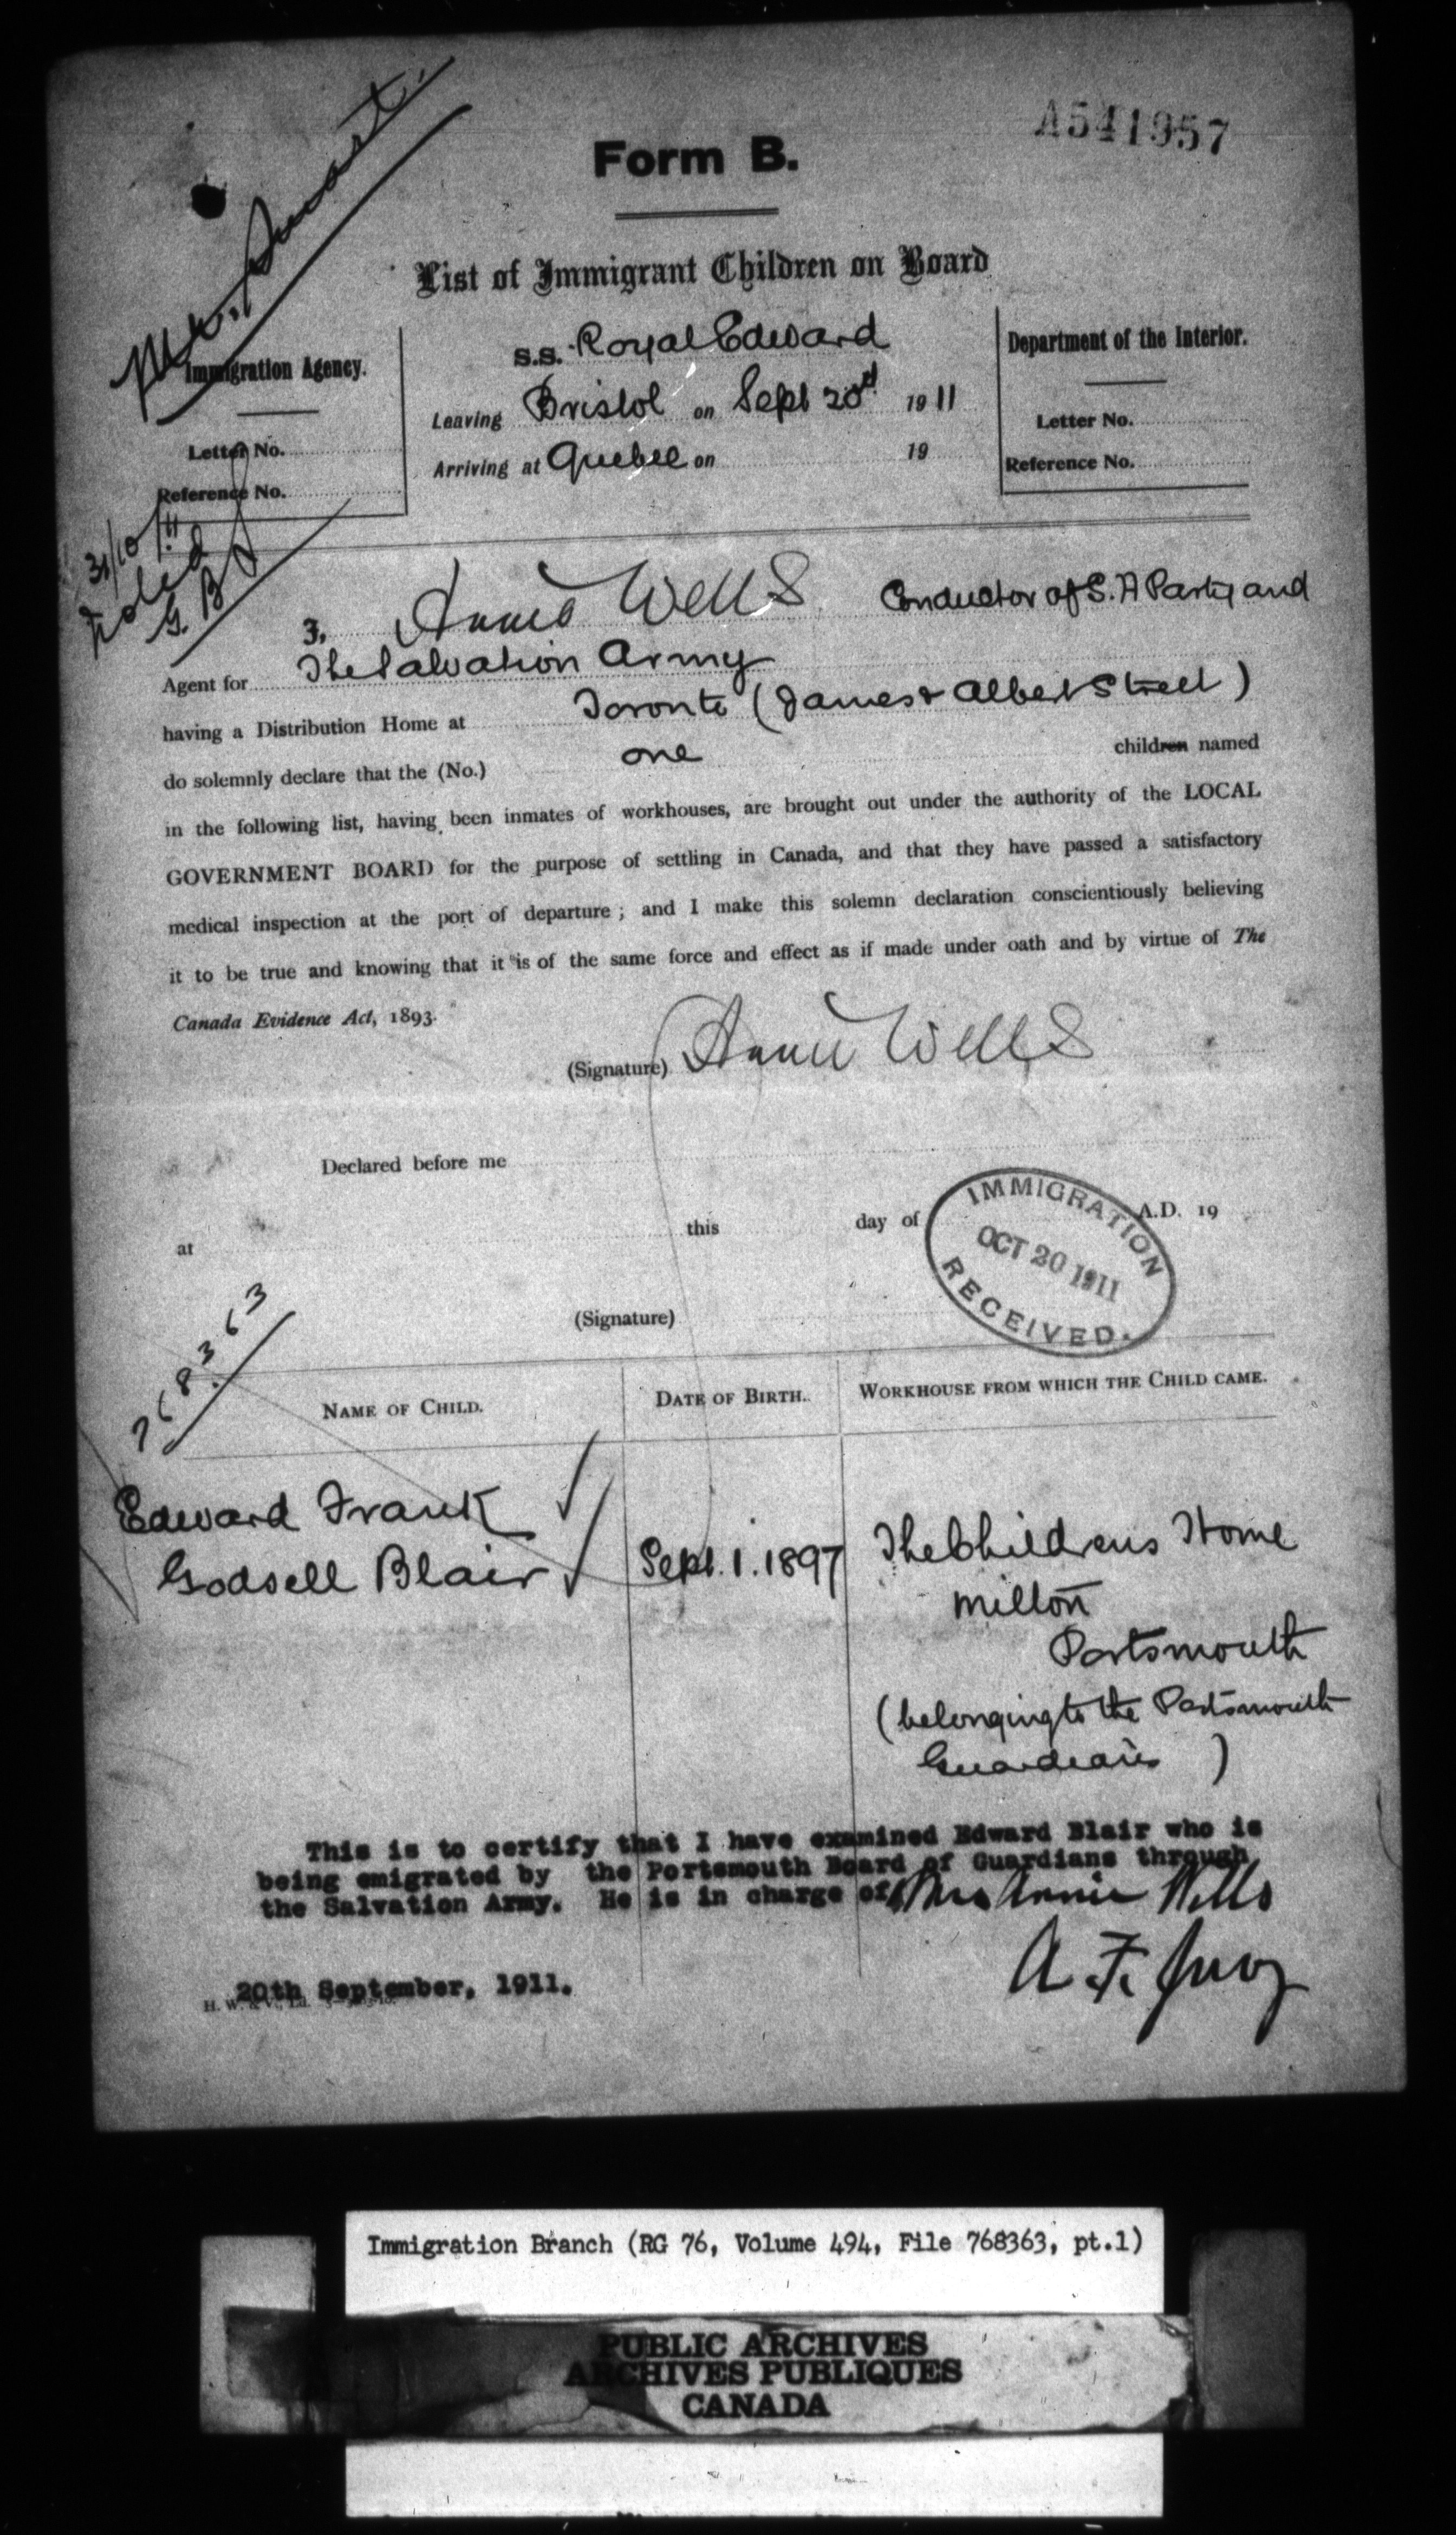 A541957
Form B.
Mr. Smart.
List of Immigrant Children on Board
Immigration Agency.
Letter No.
Reference No.
s.s. Royal Edward
Leaving Bristol on Sept 20th 1911
Arriving at Quebec on 19
Department of the Interior.
Letter No.
Reference No.
31/10/11
Noted
G.B.
I, Annie Wells Conductor of S. A Party and
Agent for The Salvation Army
having a Distribution Home at Toronto (James & Albert Street)
do solemnly declare that the (No.) one children named
in the following list, having been inmates of workhouses, are brought out under the authority of the LOCAL
GOVERNMENT BOARD for the purpose of settling in Canada, and that they have passed a satisfactory
medical inspection at the port of departure; and I make this solemn declaration conscientiously believing
it to be true and knowing that it is of the same force and effect as if made under oath and by virtue of The
Canada Evidence Act, 1893.
(Signature) Annie Wells
Declared before me
at this day of A.D. 19
IMMIGRATION
OCT 20 1911
RECEIVED.
(Signature)
768363
NAME OF CHILD. DATE OF BIRTH. WORKHOUSE FROM WHICH THE CHILD CAME.
Edward Frank
Godsell Blair Sept. 1. 1897 The Childrens Home
Milton
Portsmouth
(belonging to the Portsmouth
Guardians )
This is to certify that I have examined Edward Blair who is
being emigrated by the Portsmouth Board of Guardians through
the Salvation Army. He is in charge of Mrs Annie Wells
A. F.
20th September, 1911.
H. W. & V., Ld.
Immigration Branch (RG 76, Volume 494, File 768363, pt.1)
PUBLIC ARCHIVES
ARCHIVES PUBLIQUES
CANADA